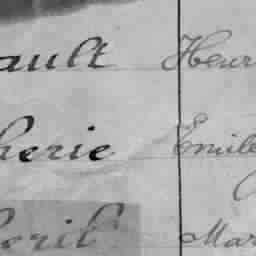 ault Henr
herie Emile
heril Mar